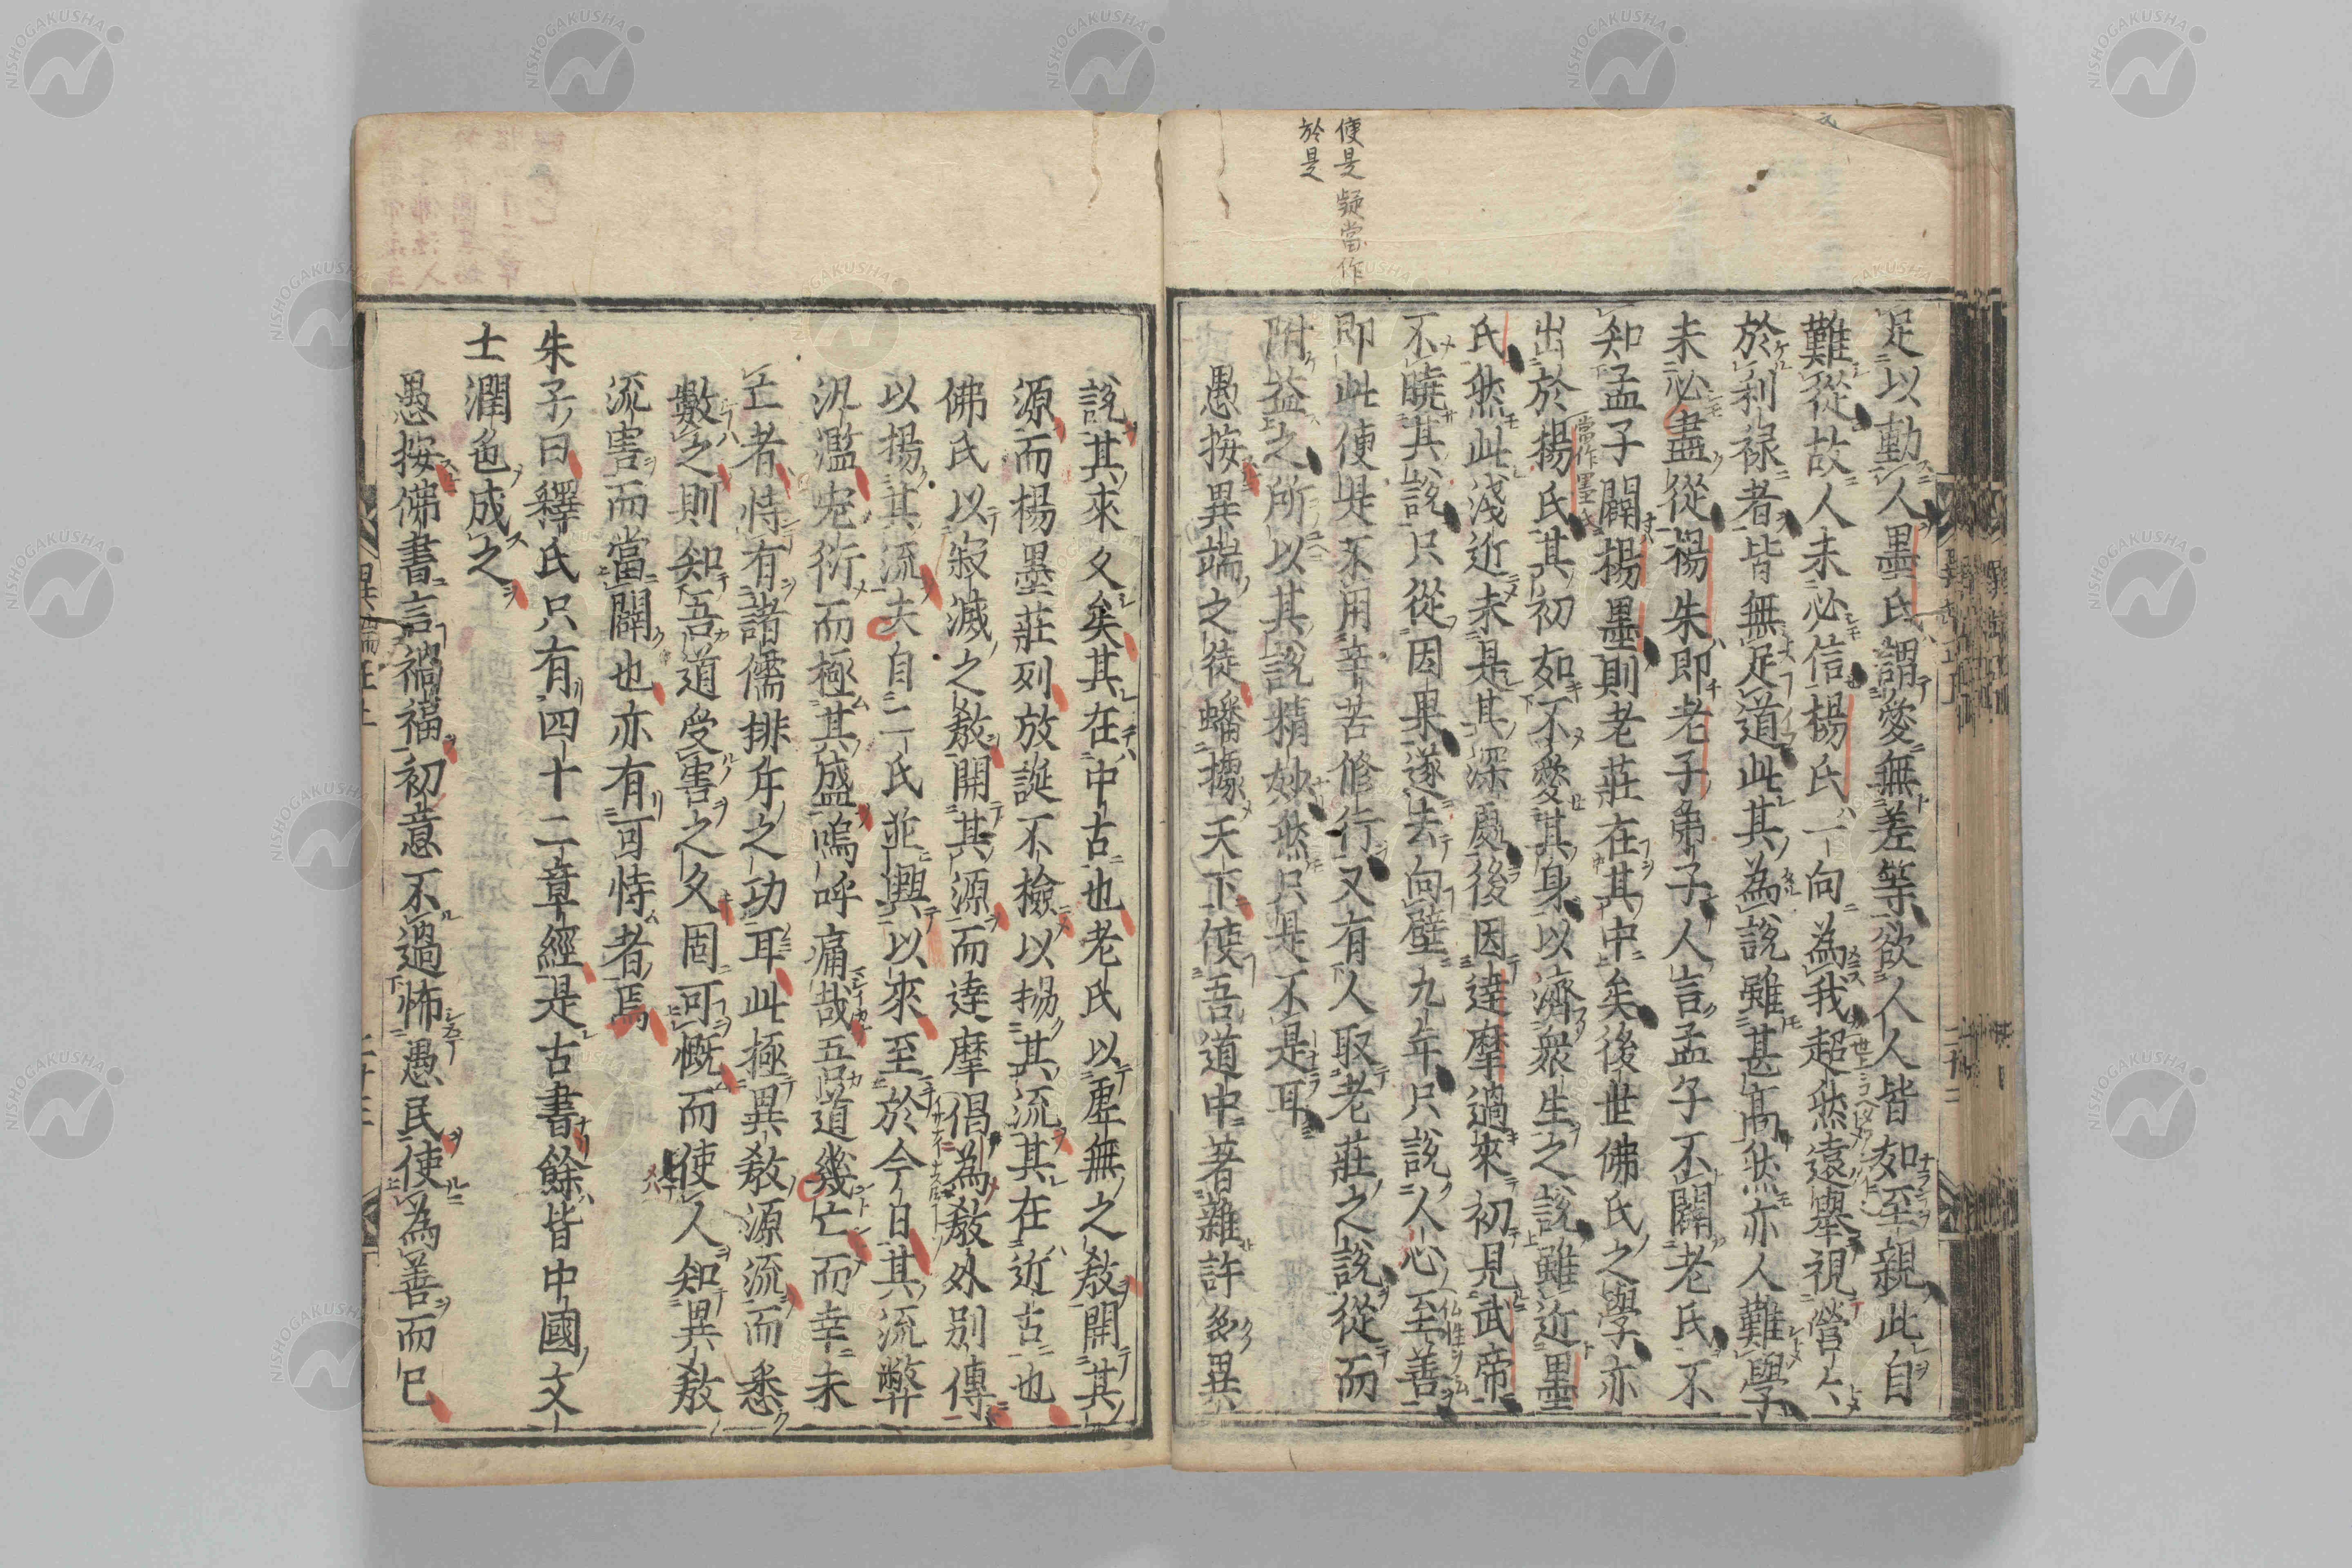 便是疑當作
於是
足以動人墨氏謂愛無差等欲人人皆如至親此自
難從故人未必信楊氏一向為我超然遠舉視營々
於利祿者皆無足道此其為說雖甚高然亦人難學
未必盡從楊朱即老子弟子人言孟子不闢老氏不
知孟子闢楊墨則老莊在其中矣後世佛氏之學亦
出於楊氏其初如不愛其身以濟衆生之說雖近墨
當作墨氏
氏然此淺近未是其深處後因達摩過來初見武帝
不曉其說只從因果遂去向壁九年只說人心至善
即此便是不用辛苦修行又有人取老莊之說從而
附益之所以其說精妙然只是不是耳
愚按異端之徒蟠據天下使吾道中著雜許多異
說其來久矣其在中古也老氏以虛無之教開其
源而楊墨莊列放誕不檢以揚其流其在近古也
佛氏以寂滅之教開其源而達摩倡為教外別傳
以揚其流夫自二氏並興以來至於今日其流弊
汎濫宏衍而極其盛嗚呼痛哉吾道幾亡而幸未
亡者恃有諸儒排斥之功耳此極異教源流而悉
數之則知吾道受害之久固可慨而使人知異教
流害而當闢也亦有可恃者焉
朱子曰釋氏只有四十二章經是古書餘皆中國文
士潤色成之
愚按佛書言禍福初意不過怖愚民使為善而已
NISHOGAKUSHA